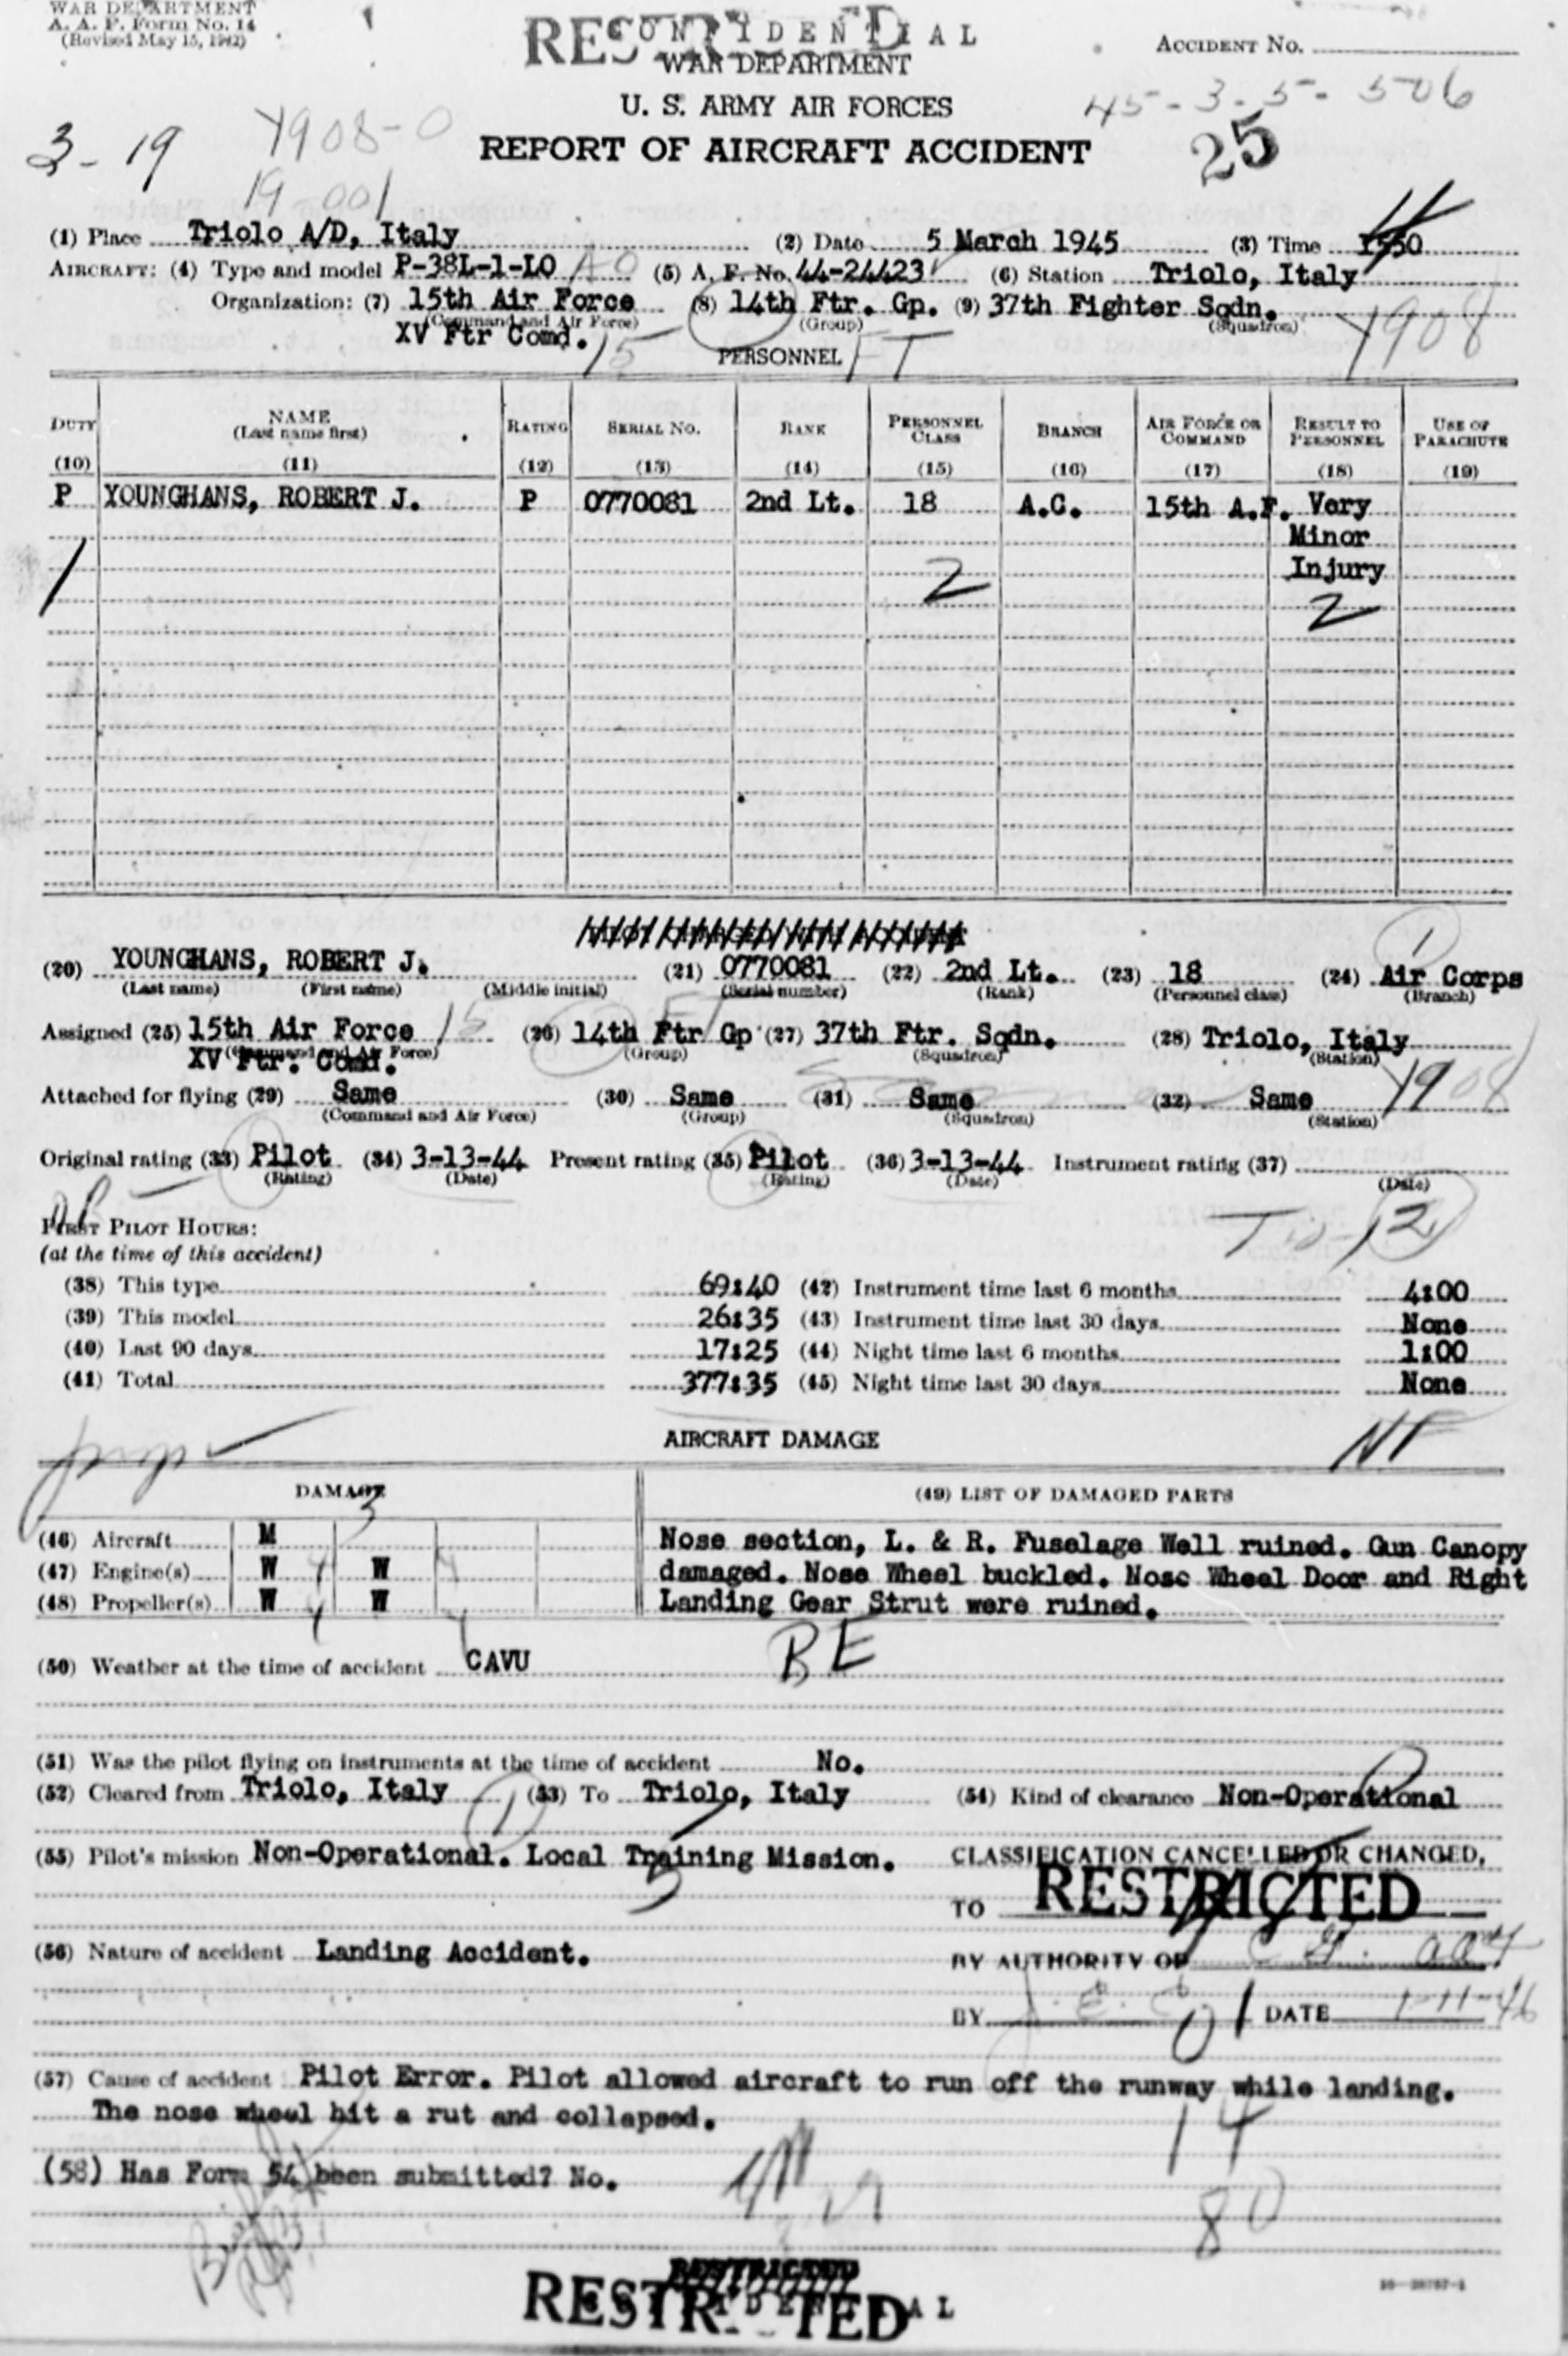 WAR DEPARTMENT
A. A. F. Form No. 14
(Revised May 15, 1942)
CONFIDENTIAL
WAR DEPARTMENT
U. S. ARMY AIR FORCES
REPORT OF AIRCRAFT ACCIDENT
ACCIDENT No.
45-3-5-506
25
3-19
Y908-0
19 001
(1) Place Triolo A/D, Italy (2) Date 5 March 1945 (3) Time 1550
AIRCRAFT: (4) Type and model P-38L-1-LO (5) A. F. No. 44-24423 (6) Station Triolo, Italy
Organization: (7) 15th Air Force (8) 14th Ftr. Gp. (9) 37th Fighter Sqdn.
(Command and Air Force) (Group) (Squadron)
XV Ftr Comd. 15 FT Y908
PERSONNEL
DUTY NAME (Last name first) RATING SERIAL No. RANK PERSONNEL CLASS BRANCH AIR FORCE OR COMMAND RESULT TO PERSONNEL USE OF PARACHUTE
(10) (11) (12) (13) (14) (15) (16) (17) (18) (19)
P YOUNGHANS, ROBERT J. P 0770081 2nd Lt. 18 A.C. 15th A.F. Very
Minor
Injury
2 2
(20) YOUNGHANS, ROBERT J. (21) 0770081 (22) 2nd Lt. (23) 18 (24) Air Corps
(Last name) (First name) (Middle initial) (Serial number) (Rank) (Personnel class) (Branch)
Assigned (25) 15th Air Force 15 (26) 14th Ftr Gp (27) 37th Ftr. Sqdn. (28) Triolo, Italy
(Command and Air Force) (Group) (Squadron) (Station)
XV Ftr. Comd.
Attached for flying (29) Same (30) Same (31) Same (32) Same Y908
(Command and Air Force) (Group) (Squadron) (Station)
Original rating (33) Pilot (34) 3-13-44 Present rating (35) Pilot (36) 3-13-44 Instrument rating (37)
(Rating) (Date) (Rating) (Date) (Date)
FIRST PILOT HOURS:
(at the time of this accident)
(38) This type 69:40 (42) Instrument time last 6 months 4:00
(39) This model 26:35 (43) Instrument time last 30 days None
(40) Last 90 days 17:25 (44) Night time last 6 months 1:00
(41) Total 377:35 (45) Night time last 30 days None
AIRCRAFT DAMAGE
DAMAGE (49) LIST OF DAMAGED PARTS
(46) Aircraft M Nose section, L. & R. Fuselage Well ruined. Gun Canopy
(47) Engine(s) W W damaged. Nose Wheel buckled. Nose Wheel Door and Right
(48) Propeller(s) W W Landing Gear Strut were ruined.
(50) Weather at the time of accident CAVU
BE
(51) Was the pilot flying on instruments at the time of accident No.
(52) Cleared from Triolo, Italy (53) To Triolo, Italy (54) Kind of clearance Non-Operational
(55) Pilot's mission Non-Operational. Local Training Mission.
CLASSIFICATION CANCELLED OR CHANGED,
TO RESTRICTED
(56) Nature of accident Landing Accident.
BY AUTHORITY OF
BY DATE 1-11-46
(57) Cause of accident Pilot Error. Pilot allowed aircraft to run off the runway while landing.
The nose wheel hit a rut and collapsed.
14
(58) Has Form 54 been submitted? No.
80
RESTRICTED